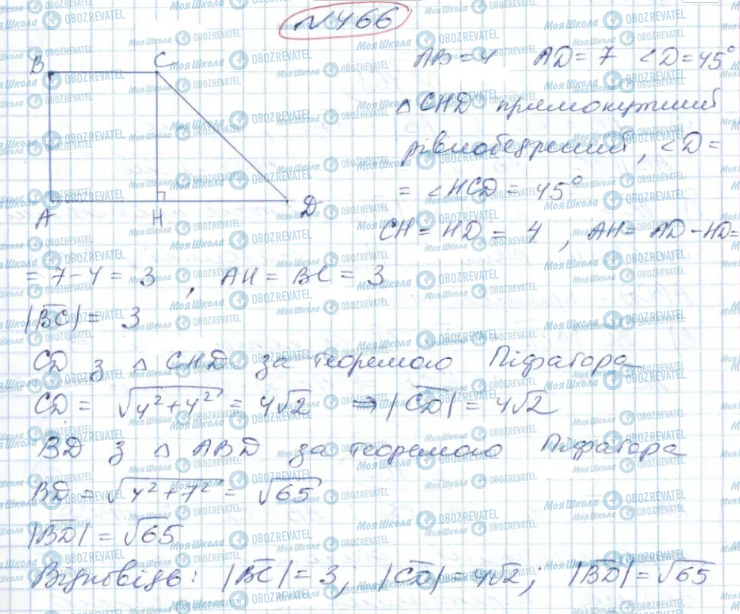 №466
B C
AB = 4 AD = 7 ∠D = 45°
△CHD прямокутний
рівнобедрений, ∠D =
= ∠HCD = 45°
A H D
CH = HD = 4, AH = AD - HD =
= 7 - 4 = 3, AH = BC = 3
|BC| = 3
CD з △CHD за теоремою Піфагора
CD = √4²+4² = 4√2 ⇒ |CD| = 4√2
BD з △ABD за теоремою Піфагора
BD = √4²+7² = √65
|BD| = √65
Відповідь: |BC| = 3, |CD| = 4√2; |BD| = √65
Моя Школа OBOZREVATEL